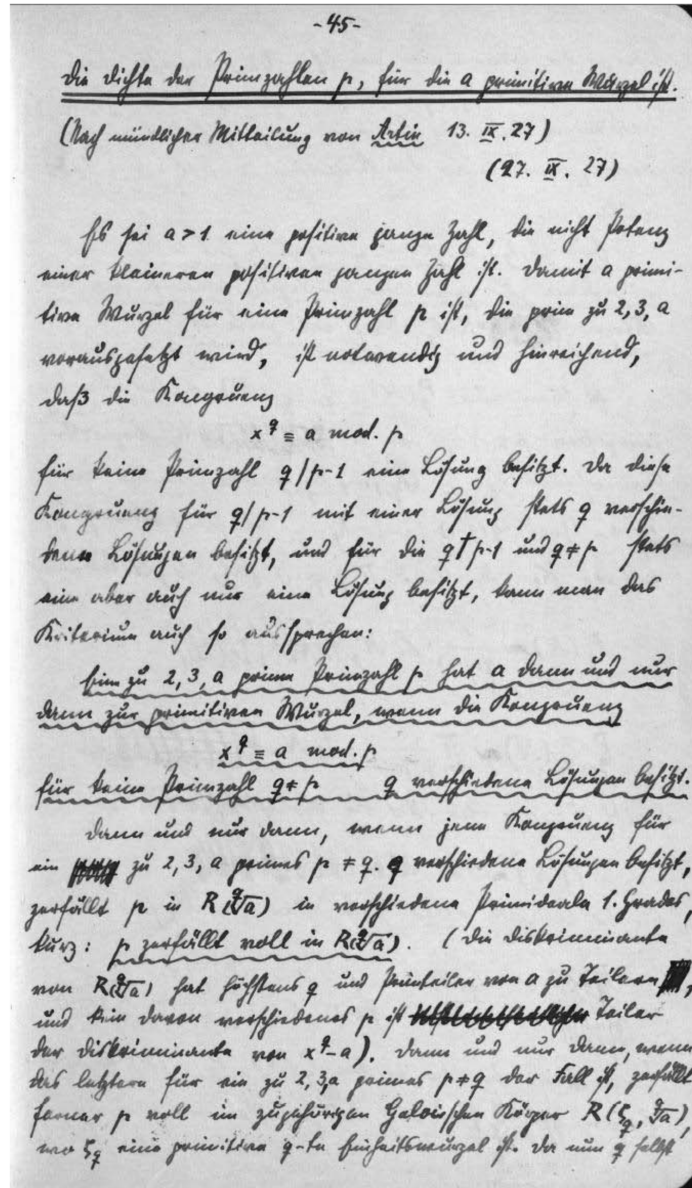 -45-
Die Dichte der Primzahlen p, für die a primitive Wurzel ist.
(Nach mündlicher Mitteilung von Artin 13. IX. 27)
(27. IX. 27)
Es sei a > 1 eine positive ganze Zahl, die nicht Potenz
einer kleineren positiven ganzen Zahl ist. Damit a primi-
tive Wurzel für eine Primzahl p ist, die prim zu 2, 3, a
vorausgesetzt wird, ist notwendig und hinreichend,
daß die Kongruenz
x^q ≡ a mod. p
für keine Primzahl q/p-1 eine Lösung besitzt. Da diese
Kongruenz für q/p-1 mit einer Lösung stets q verschie-
dene Lösungen besitzt, und für die q†p-1 und q≠p stets
eine aber auch nur eine Lösung besitzt, kann man das
Kriterium auch so aussprechen:
Eine zu 2, 3, a prime Primzahl p hat a dann und nur
dann zur primitiven Wurzel, wenn die Kongruenz
x^q ≡ a mod. p
für keine Primzahl q≠p q verschiedene Lösungen besitzt.
Dann und nur dann, wenn jene Kongruenz für
ein zu 2, 3, a primes p ≠ q. q verschiedene Lösungen besitzt,
zerfällt p in R(q√a) in verschiedene Primideale 1. Grades,
kurz: p zerfällt voll in R(q√a). (Die Diskriminante
von R(q√a) hat höchstens q und Primteiler von a zu Teilern,
und kein davon verschiedenes p ist Teiler
der Diskriminante von x^q-a). Dann und nur dann, wenn
das letztere für ein zu 2,3,a primes p≠q der Fall ist, zerfällt
ferner p voll im zugehörigen Galoisschen Körper R(ζ_q, q√a),
wo ζ_q eine primitive q-te Einheitswurzel ist. Da nun q selbst